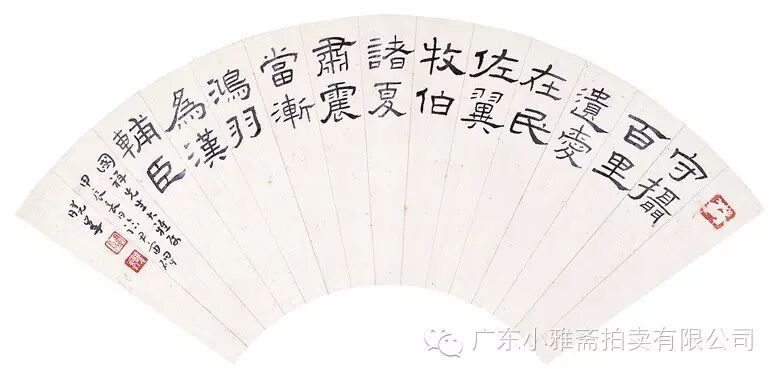 守攝
百里
遺愛
在民
佐翼
牧伯
諸夏
肅震
當漸
鴻羽
為漢
輔臣
國祥先生大雅屬
甲辰長日臨尹宙碑
广东小雅斋拍卖有限公司